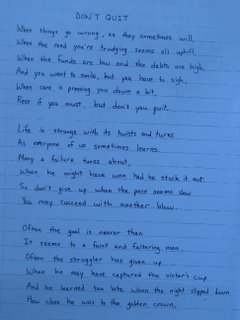 DON'T QUIT
When things go wrong, as they sometimes will,
When the road you're trudging seems all uphill,
When the funds are low and the debts are high,
And you want to smile, but you have to sigh,
When care is pressing you down a bit,
Rest if you must, but don't you quit.
Life is strange with its twists and turns
As everyone of us sometimes learns
Many a failure turns about,
When he might have won had he stuck it out.
So don't give up when the pace seems slow
You may succeed with another blow.
Often the goal is nearer than
It seems to a faint and faltering man.
Often the struggler has given up
When he may have captured the victor's cup
And he learned too late when the night slipped down
How close he was to the golden crown.